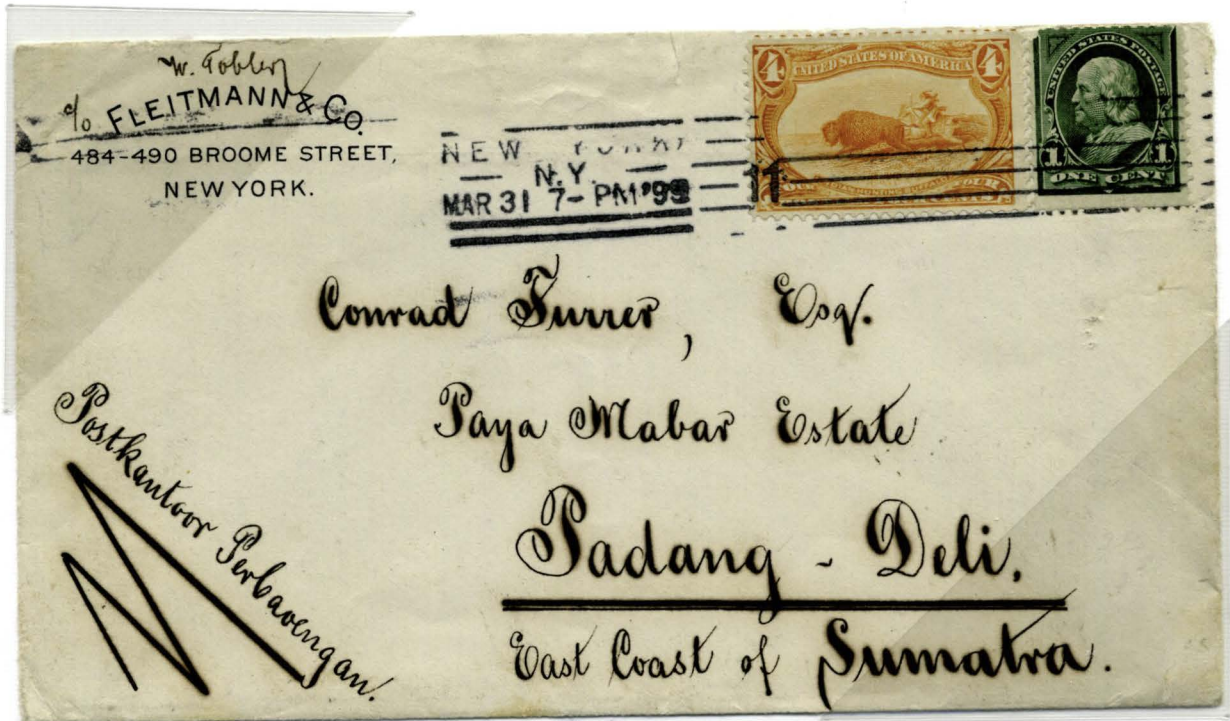 W. Tobler
c/o FLEITMANN & CO.
484-490 BROOME STREET,
NEW YORK.
NEW YORK,
N.Y.
MAR 31 7-PM '99
11
4 UNITED STATES OF AMERICA 4
UNITED STATES POSTAGE
1 1
ONE CENT
Conrad Furrer, Esq.
Paya Mabar Estate
Padang - Deli,
East Coast of Sumatra.
Postkantoor Perbaoengan.